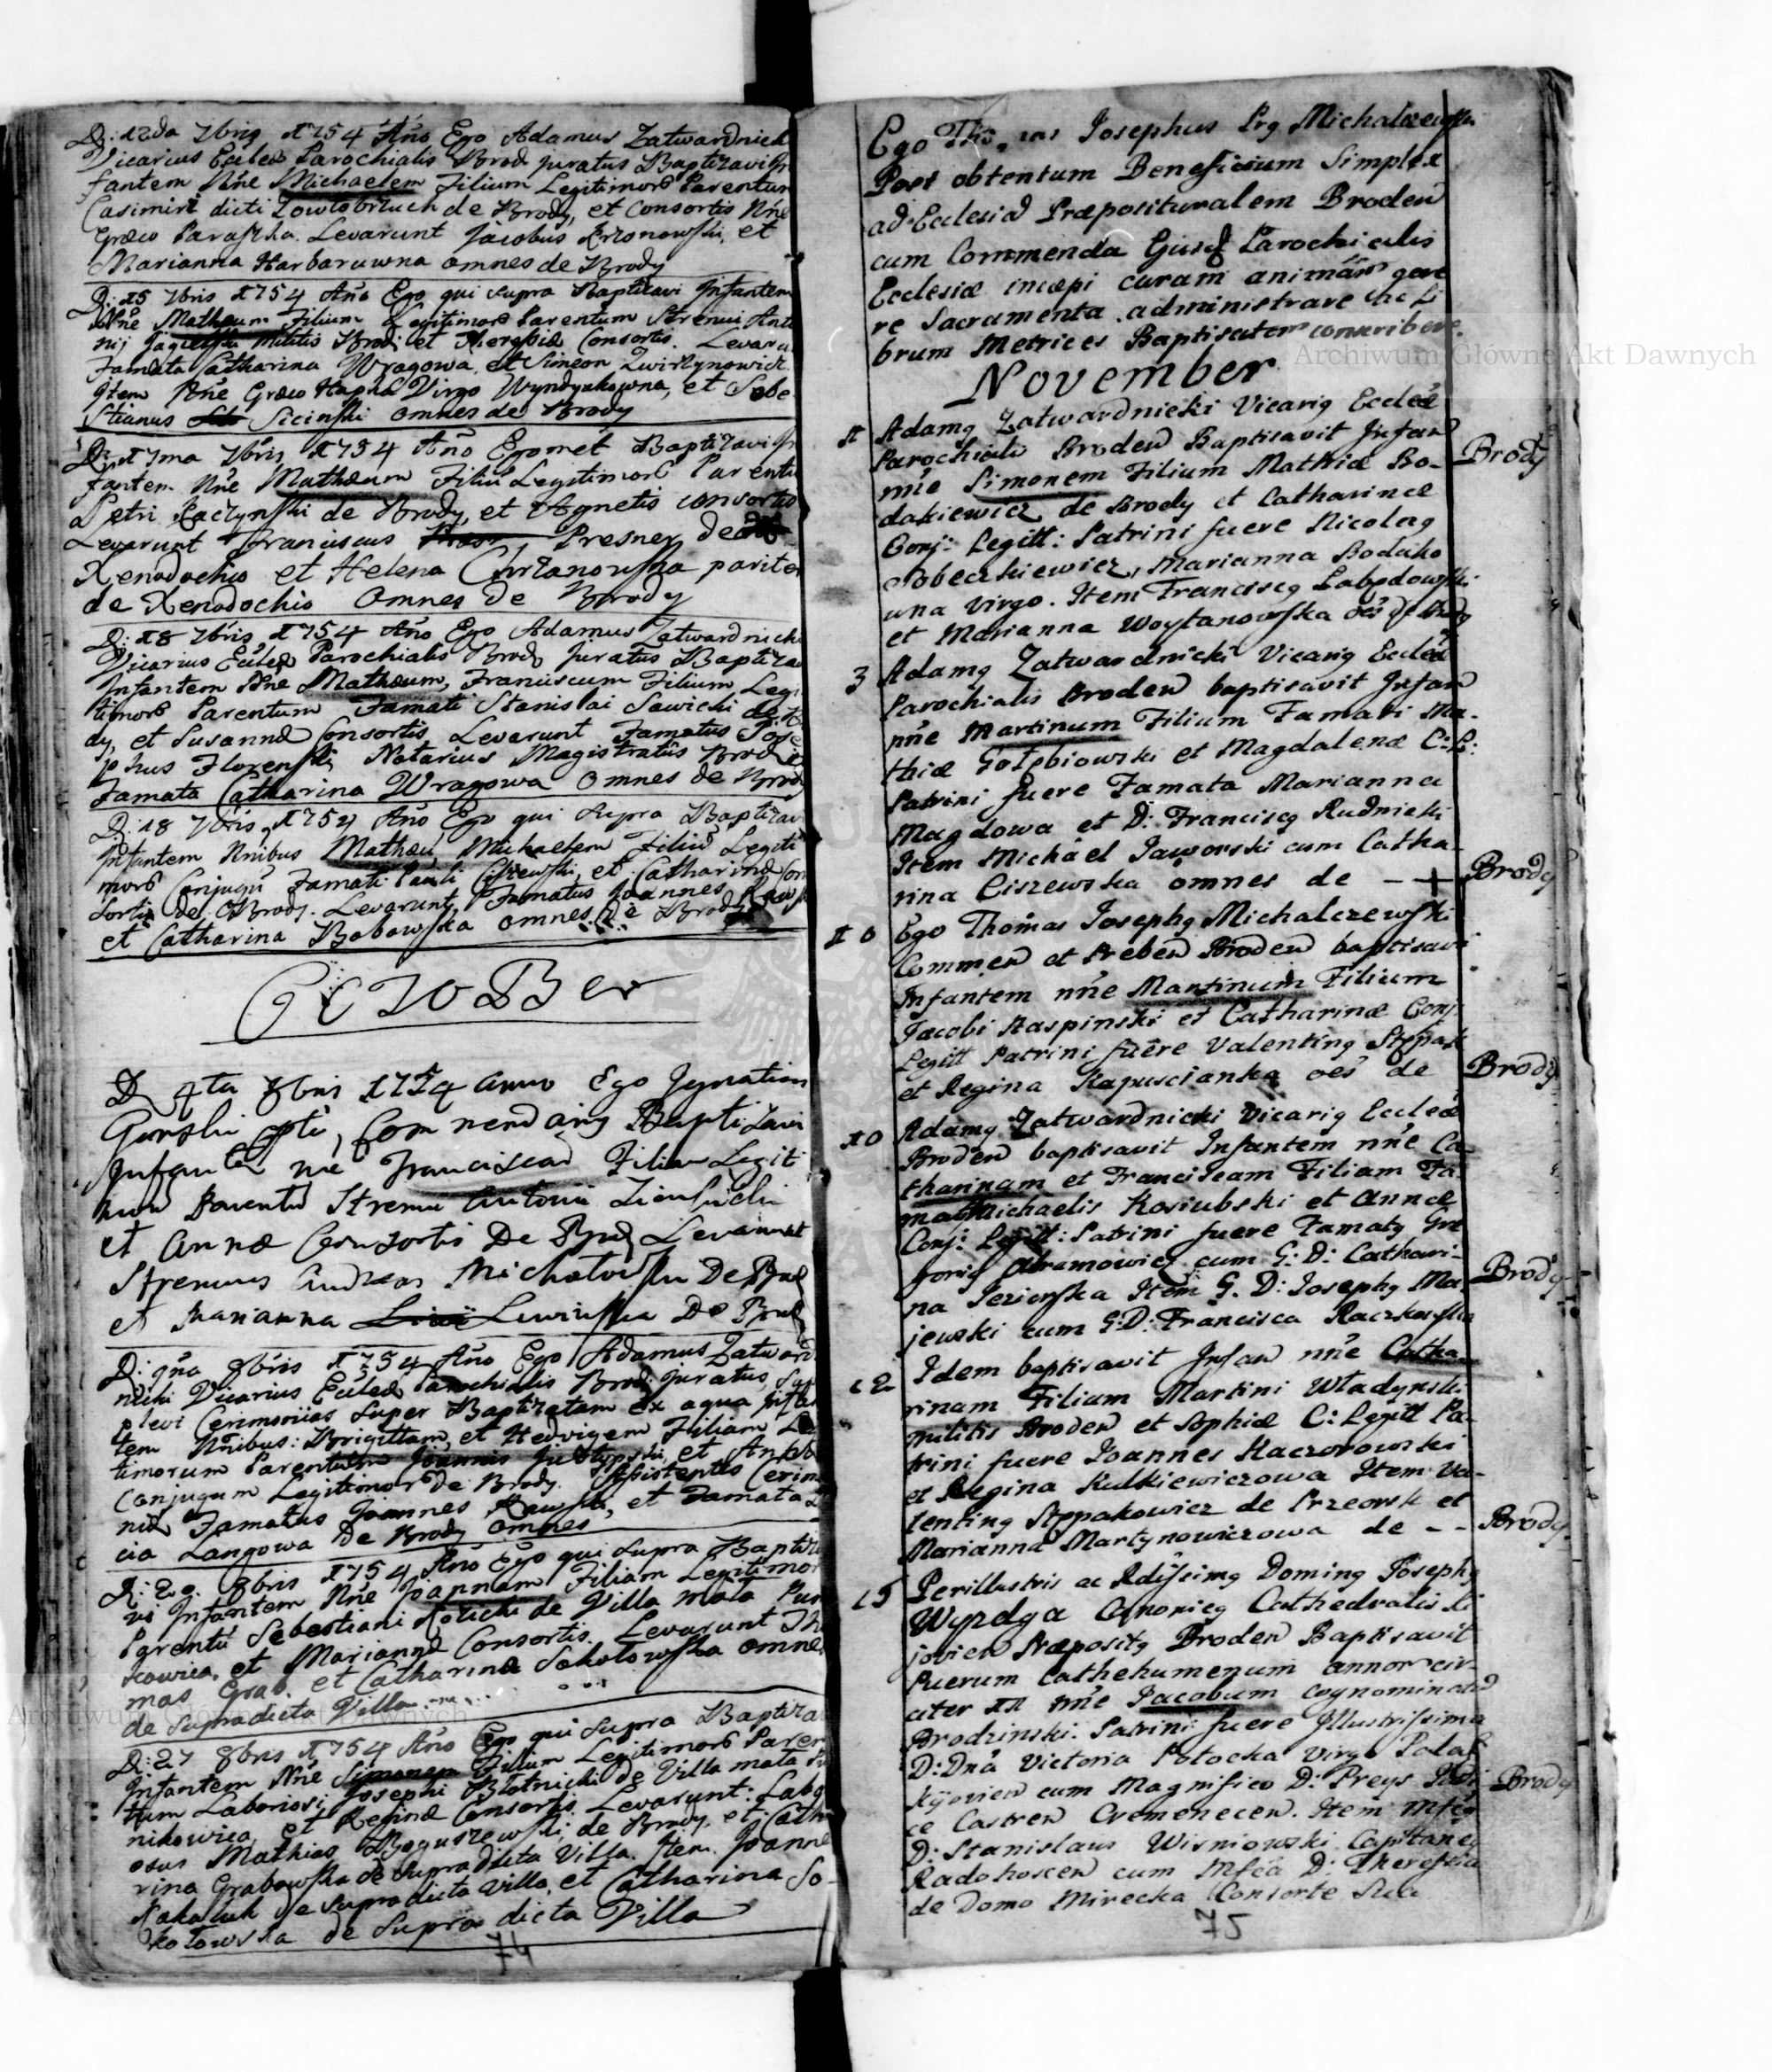 D: 12da 7bris 1754 Año Ego Adamus Zatwardnick
Vicarius Eccles Parochialis Brod juratus Baptizavi In
fantem Nne Michaelem Filium Legitimor Parentum
Casimiri dicti de Brody, et Consortis Nne
Græco Paraszka. Levarunt Jacobus Krzonowski, et
Marianna Harbaruwna omnes de Brody
D: 15 7bris 1754 Año Ego qui supra Baptizavi Infantem
Nne Mathæum Filium Legitimor Parentum Strenui Anto
nij Militis Brod et Consortis. Levaru
Famata Catharina Wragowa, et Simeon
Item Nne Græco Hapka Virgo Wyndyakowna, et Seba
stianus Siciński omnes de Brody
D: 17ma 7bris 1754 Año Egomet Baptizavi In
fantem Nne Mathæum Filiu Legitimor Parentu
Petri Raczynski de Brody, et Agnetis consortis
Levarunt Franciscus Presner de
Xenodochio et Helena Chrzanowska pariter
de Xenodochio Omnes de Brody
D: 18 7bris 1754 Año Ego Adamus Zatwardnicki
Vicarius Eccles Parochialis Brod juratus Baptiza
Infantem Nne Mathæum, Franciscum Filium Legi
timor Parentum Famati Stanislai Sawicki de Br
dy, et Susannæ Consortis Levarunt Famatus Jose
phus Florenski Notarius Magistratus Brod e
Famata Catharina Wragowa omnes de Brod
D: 18 7bris 1754 Año Ego qui supra Baptizav
Infantem Nnibus Mathæu Michaelem Filiu Legiti
mor Conjugu Famati Pauli Ciszewski, et Catharinæ Con
sortis de Brody. Levarunt Famatus Joannes
et Catharina Bobowska omnes de Brody
OCTOBer
D 4ta 8bris 1754 anno Ego Ignatius
Gurski Commendarius Baptizavi
Infantem nne Franciscam Filiam Legiti
mor Parentu Strenui Antonii
et Annæ Consortis De Brod Levarunt
Strenuus Andreas Michalowski De Brod
et Marianna Lewinska De Brod
D: 9na 8bris 1754 Año Ego Adamus Zatward
nicki Vicarius Eccles Parochialis Brod juratus, sup
plevi Cerimoniias super Baptizatam ex aqua Infan
tem Nnibus: Brigittam, et Hedvigem Filiam Le
timorum Parentum Joannis et
Conjugum Legitimor de Brody. Assistentes Cerimo
niæ Famatus Joannes et Famata
cia Langowa De Brody omnes
D: 20. 8bris 1754 Año Ego qui supra Baptiza
vi Infantem Nne Joannam Filiam Legitimor
Parentu Sebastiani de Villa mota
et Mariannæ Consortis. Levarunt Tho
mas Grab. et Catharina Sokotowska omnes
de Supradicta Villa
D: 27 8bris 1754 Año Ego qui supra Baptiza
Infantem Nne Simonem Filium Legitimor Paren
tum Laboriosi Josephi Blotnicki de Villa mota
et Reginæ Consortis. Levarunt: Labo
osus Mathias Boguszewski de Brody, et Catha
rina Grabowska de Supradicta Villa. Item Joanne
de supradicta Villa, et Catharina So
kotowska de supra dicta Villa
74
Ego Thomas Josephus Prg Michalczewski
Post obtentum Beneficium Simplex
ad Ecclesiã Præposituralem Broden
cum Commenda Parochialis
Ecclesiæ incæpi curam animar gere
re Sacramenta administrare ac Li
brum Metrices Baptisator conscribere.
November
1 Adamg Zatwardnicki Vicarig Eccles
Parochialis Broden Baptisavit Infan
nne Simonem Filium Mathiæ Bo-
dakiewicz de Brody et Catharinæ
Conj: Legitt: Patrini fuere Nicolag
Sobeczkiewicz, Marianna Bodako
una Virgo. Item Franciscg
et Marianna Woytanowska oes de Brody
Brody
3 Adamg Zatwardnicki Vicarig Eccles
Parochialis Broden baptisavit Infan
nne Martinum Filium Famati Ma-
thiæ Gołębiowski et Magdalenæ C: L:
Patrini fuere Famata Marianna
Magdowa et D: Franciscg Rudnicki
Item Michael Jaworski cum Catha-
rina Ciszewska omnes de -- Brody
10 Ego Thomas Josephg Michalczewski
Commen et Preben Broden baptisavi
Infantem nne Martinum Filium
Jacobi Raspinski et Catharinæ Conj.
Legitt Patrini fuere Valenting
et Regina Kapuscianka oes de Brody
10 Adamg Zatwardnicki Vicarig Eccles
Broden baptisavit Infantem nne Ca
tharinam et Franciscam Filiam Fa
mati Michaelis Kosiubski et Annæ
Conj: Legitt: Patrini fuere Famatg Gre
gorig Abramowicz cum G: D: Cathari-
na Jezierska Item G. D: Josephg Ma-
jewski cum G: D: Francisca Raczkowska
Brody
12 Idem baptisavit Infan nne Catha-
rinam Filiam Martini Władynski
militis Broden et Sophiæ C: Legitt Pa-
trini fuere Joannes Kaczorowski
et Regina Kulkiewiczowa Item Va-
lenting Stepakowicz de et
Marianna Martynowiczowa de -- Brody
15 Perillustris ac Rdissimg Doming Josephg
Wyrdga Canonicg Cathedralis Ki
jovien Præpositg Broden Baptisavit
Puerum Cathehumenum annor cir-
citer nne Jacobum cognominatu
Brodzinski. Patrini fuere Illustrissima
D: Dna Victoria Potocka Virgo Palat
Kijovien cum Magnifico D: Preys
ce Castren Cremenecen. Item Mfcg
D: Stanislaus Wisniowski Capitaneg
cum Mfca D: Theressia
de Domo Mirecka Consorte Sua
Brody
75
Archiwum Główne Akt Dawnych
Archiwum Główne Akt Dawnych